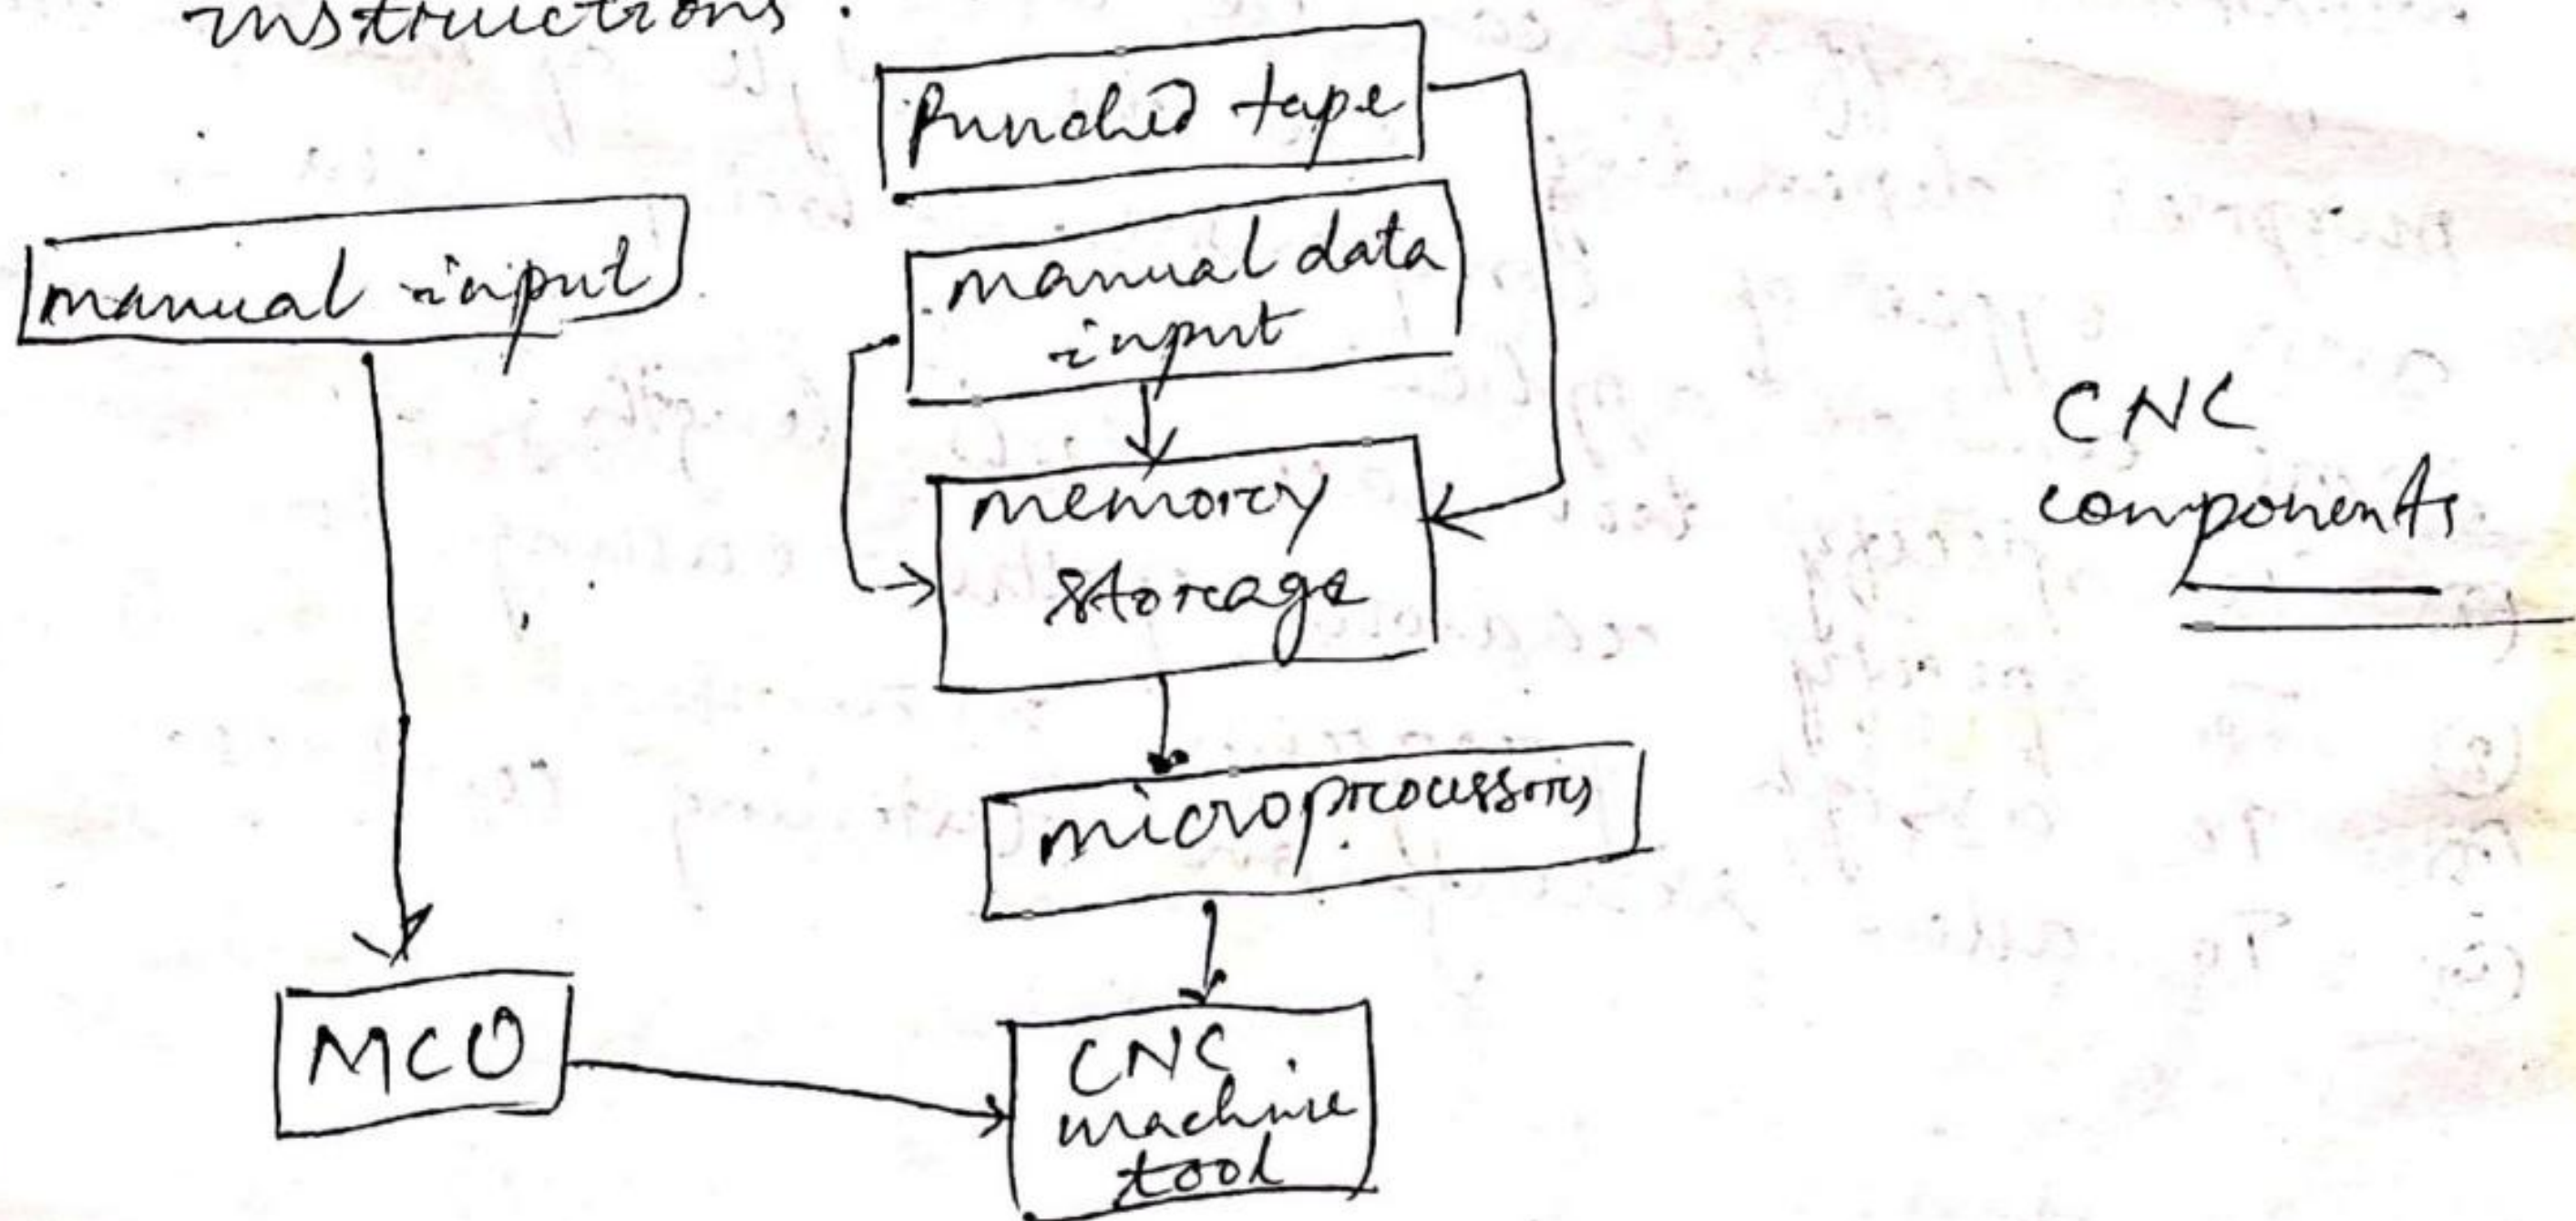 instructions.
Punched tape
manual input
manual data
input
memory
storage
CNC
components
microprocessors
MCO
CNC
machine
tool